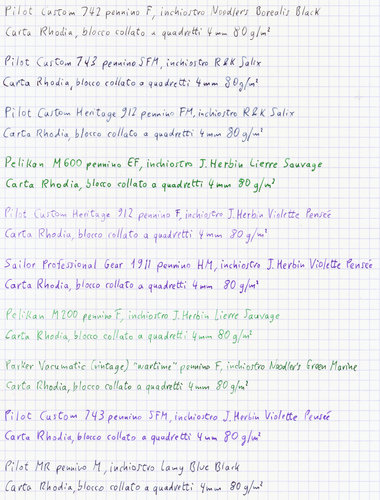 Pilot Custom 742 pennino F, inchiostro Noodler's Borealis Black
Carta Rhodia, blocco collato a quadretti 4mm 80g/m²
Pilot Custom 743 pennino SFM, inchiostro R&K Salix
Carta Rhodia, blocco collato a quadretti 4mm 80g/m²
Pilot Custom Heritage 912 pennino FM, inchiostro R&K Salix
Carta Rhodia, blocco collato a quadretti 4mm 80g/m²
Pelikan M600 pennino EF, inchiostro J.Herbin Lierre Sauvage
Carta Rhodia, blocco collato a quadretti 4mm 80g/m²
Pilot Custom Heritage 912 pennino F, inchiostro J.Herbin Violette Penseé
Carta Rhodia, blocco collato a quadretti 4mm 80g/m²
Sailor Professional Gear 1911 pennino HM, inchiostro J.Herbin Violette Penseé
Carta Rhodia, blocco collato a quadretti 4mm 80g/m²
Pelikan M200 pennino F, inchiostro J.Herbin Lierre Sauvage
Carta Rhodia, blocco collato a quadretti 4mm 80g/m²
Parker Vacumatic (vintage) "wartime" pennino F, inchiostro Noodler's Green Marine
Carta Rhodia, blocco collato a quadretti 4mm 80g/m²
Pilot Custom 743 pennino SFM, inchiostro J.Herbin Violette Penseé
Carta Rhodia, blocco collato a quadretti 4mm 80g/m²
Pilot MR pennino M, inchiostro Lamy Blue Black
Carta Rhodia, blocco collato a quadretti 4mm 80g/m²